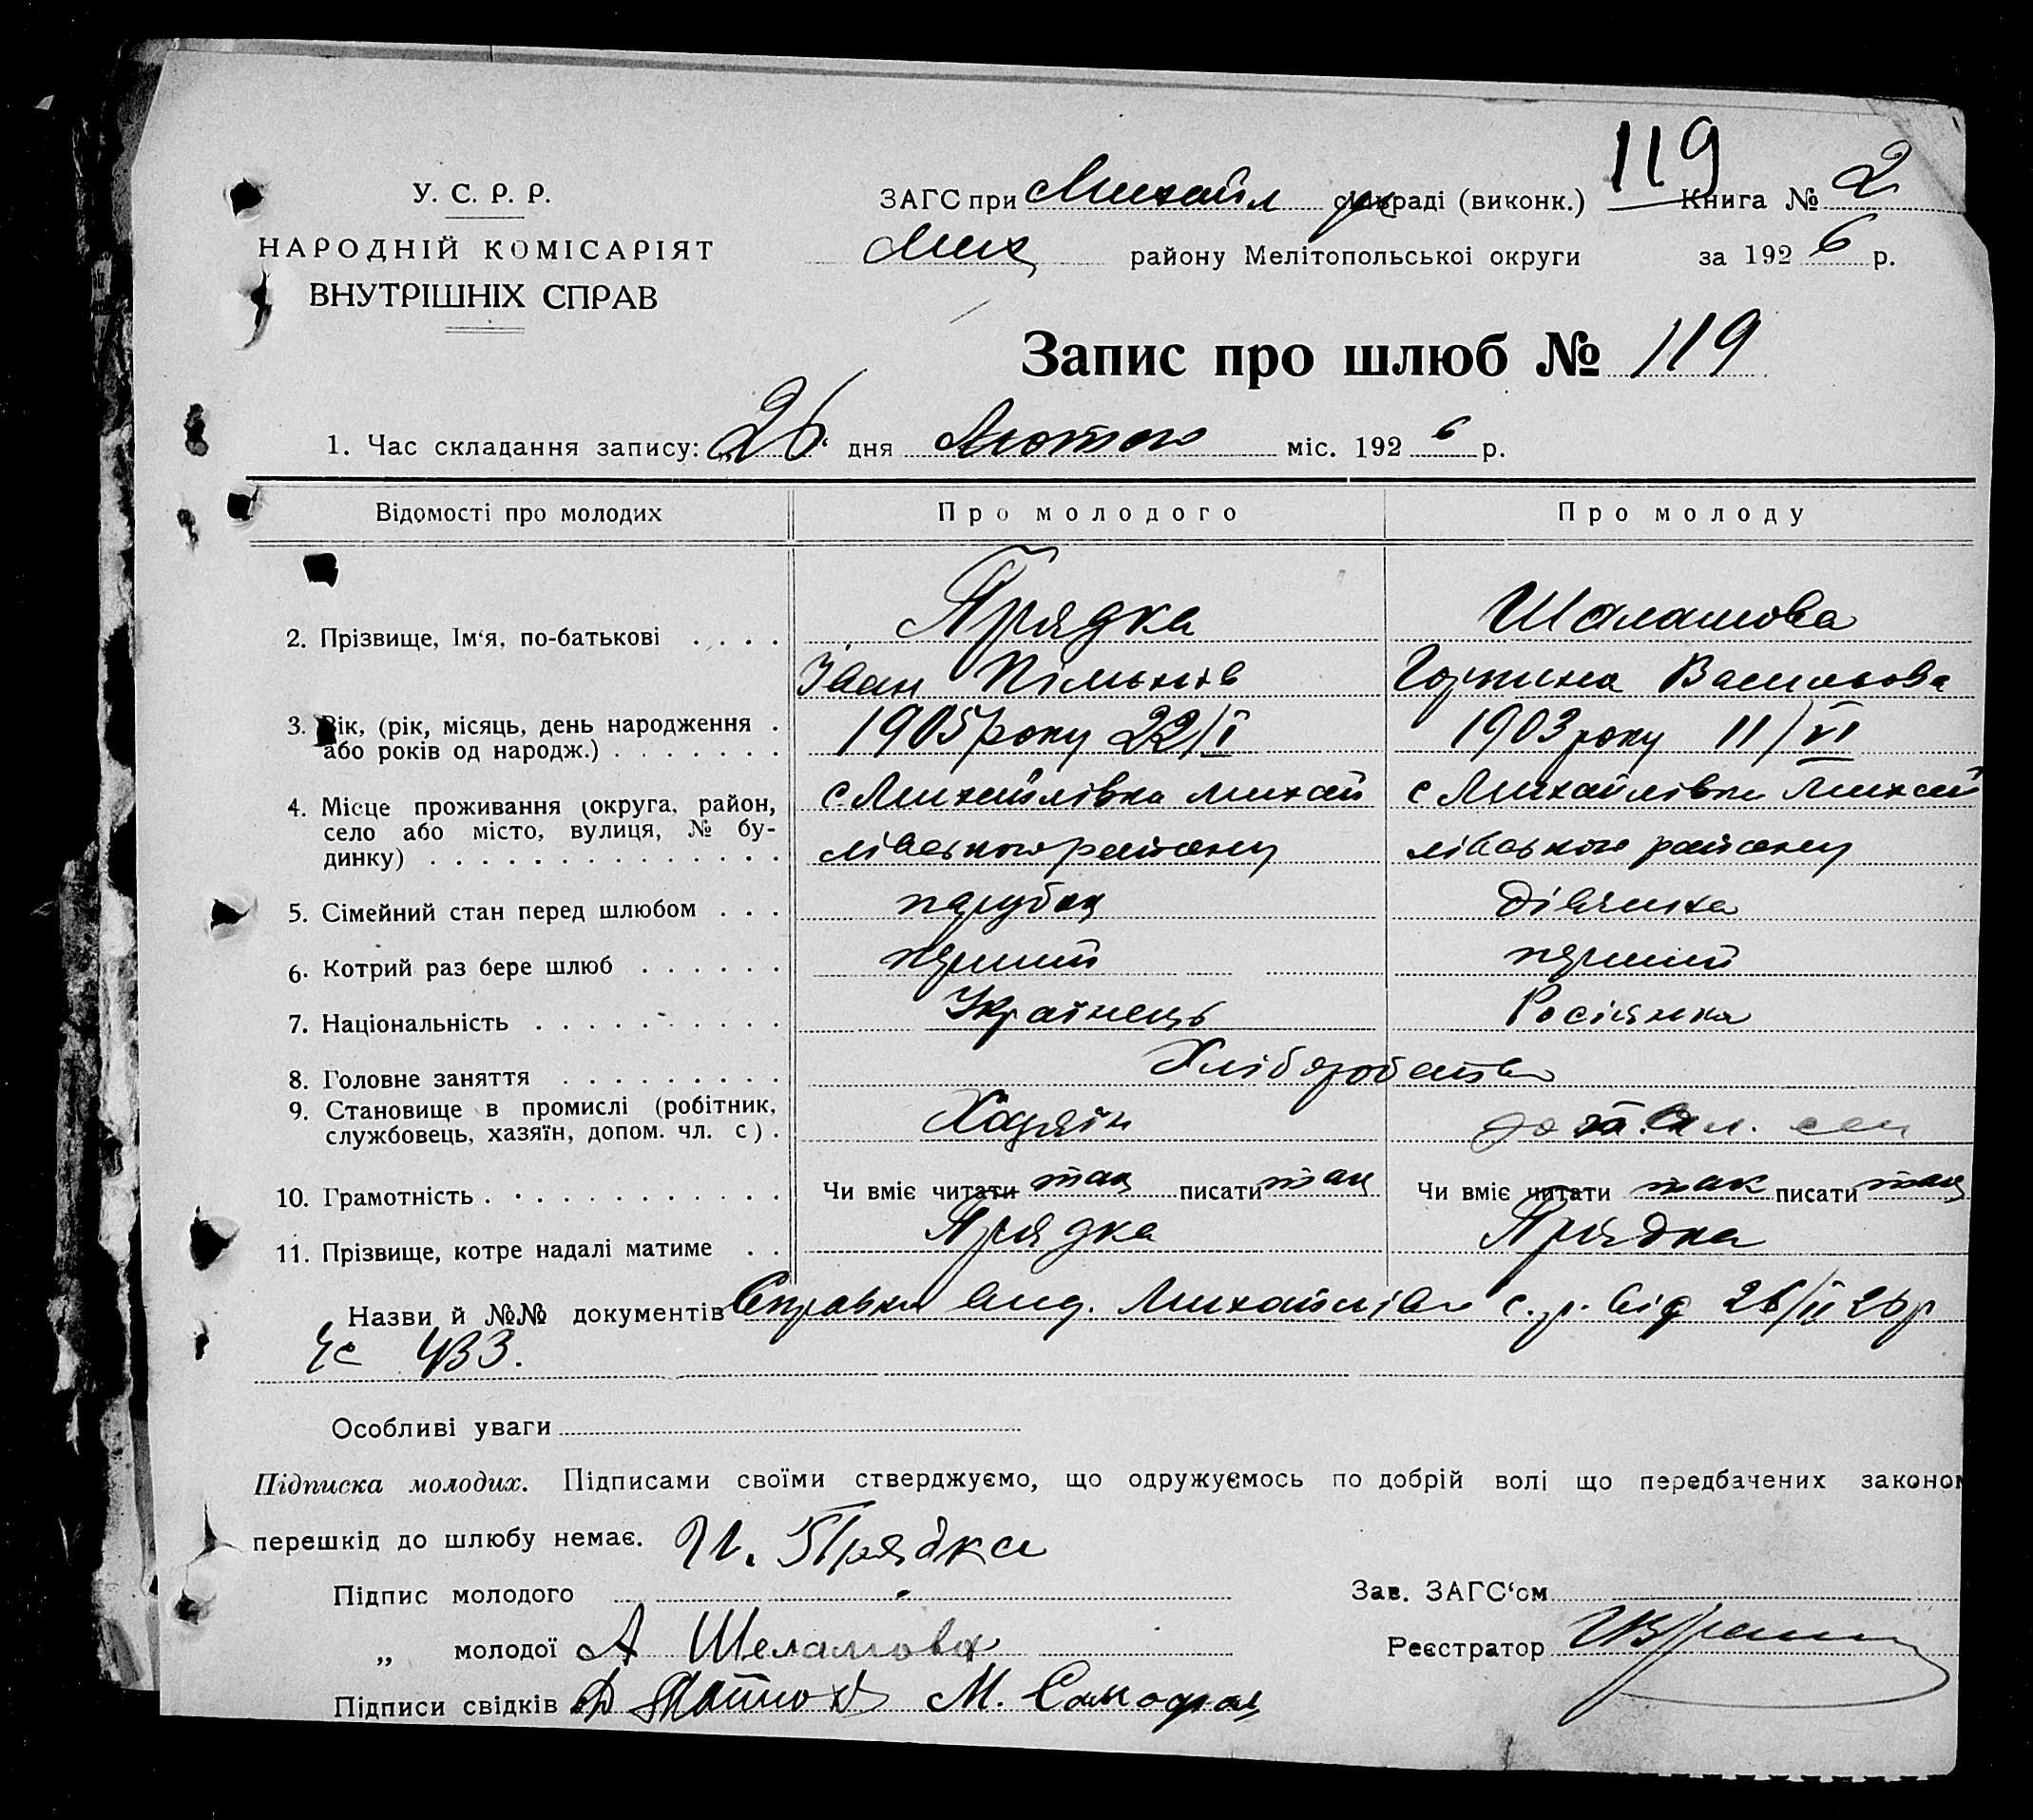 119
У. С. Р. Р.
ЗАГС при Михайл раді (виконк.) Книга № 2
НАРОДНІЙ КОМІСАРІЯТ
Мих району Мелітопольськоі округи за 1926 р.
ВНУТРІШНІХ СПРАВ
Запис про шлюб № 119
1. Час складання запису: „26“ дня Лютого міс. 1926 р.
Відомості про молодих Про молодого Про молоду
2. Прізвище, Ім‘я, по-батькові . . . . Прядка Шаламова
Іван Васильова
3. Рік, (рік, місяць, день народження . 1905 року 22/I 1903 року 11/VI
або років од народж.) . . . . . . .
4. Місце проживання (округа, район, с Михайлівка Михай с Михайлівка Михай
село або місто, вулиця, № бу-
динку) . . . . . . . . . . . . . . лівського району лівського району
5. Сімейний стан перед шлюбом . . . парубок дівчина
6. Котрий раз бере шлюб . . . . . . перший перший
7. Національність . . . . . . . . . . Українець Росіянка
8. Головне заняття . . . . . . . . . Хліборобство
9. Становище в промислі (робітник, Хазяїн
службовець, хазяїн, допом. чл. с) .
10. Грамотність . . . . . . . . . . . Чи вміє читати так писати так Чи вміє читати так писати так
11. Прізвище, котре надалі матиме . . Прядка Прядка
Назви й №№ документів Справка вид. Михайлівк с. р. від 26/II 26 р
Чс 433.
Особливі уваги
Підписка молодих. Підписами своїми стверджуємо, що одружуємось по добрій волі що передбачених законом
перешкід до шлюбу немає. И. Прядка
Підпис молодого Зав. ЗАГС‘ом
„ молодої А Шеламова Реєстратор
Підписи свідків М.